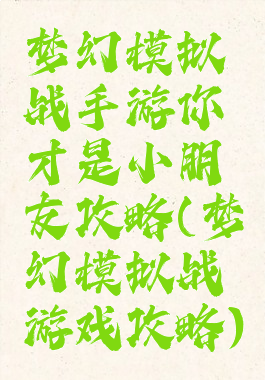 梦幻模拟
战手游你
才是小朋
友攻略(梦
幻模拟战
游戏攻略)